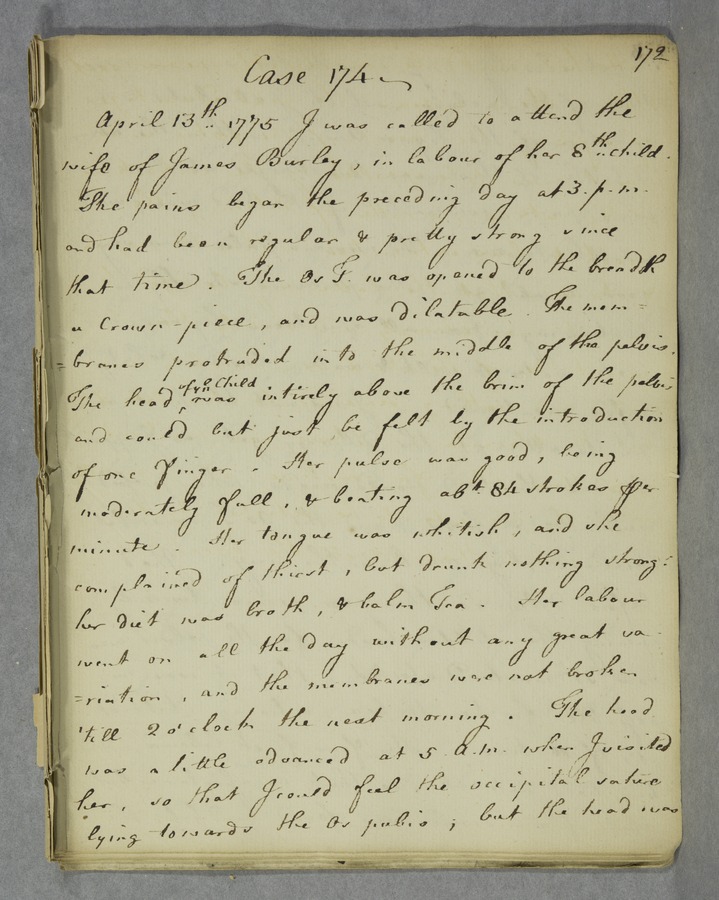 172
Case 174
April 13th 1775 I was called to attend the
wife of James Burley, in labour of her 8th child.
The pains began the preceding day at 3. p.m.
and had been regular & pretty strong since
that time. The Os T. was opened to the breadth
a Crown-piece, and was dilatable. The mem=
=branes protruded into the middle of the pelvis.
The head of ye Child was intirely above the brim of the pelvis
and could but just be felt by the introduction
of one Finger. Her pulse was good, being
moderately full, & beating abt 84 strokes per
minute. Her tongue was whitish, and she
complained of thirst, but drunk nothing strong:
her diet was broth, & balm Tea. Her labour
went on all the day without any great va-
=riation, and the membranes were not broken
'till 2 o'clock the next morning. The head
was a little advanced at 5 a.m. when I visited
her, so that I could feel the occipital suture
lying towards the Os pubis; but the head was